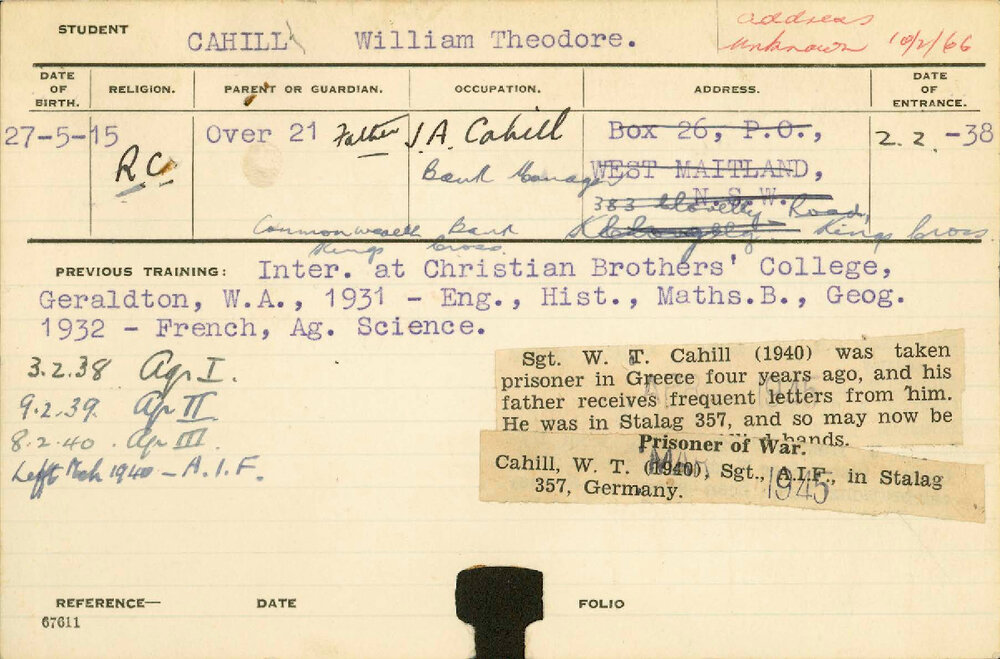 STUDENT CAHILL, William Theodore.
address
unknown 10/2/66
DATE OF BIRTH. RELIGION. PARENT OR GUARDIAN. OCCUPATION. ADDRESS. DATE OF ENTRANCE.
27-5-15 R.C. Over 21 Father J.A. Cahill Box 26, P.O., 2.2.-38
Bank Manager WEST MAITLAND,
N.S.W.
383 Clovelly Road,
Commonwealth Bank Clovelly Kings Cross
Kings Cross
PREVIOUS TRAINING: Inter. at Christian Brothers' College,
Geraldton, W.A., 1931 - Eng., Hist., Maths.B., Geog.
1932 - French, Ag. Science.
3.2.38 Agr I.
9.2.39. Agr II
8.2.40. Agr III.
Left Mch 1940 - A.I.F.
Sgt. W. T. Cahill (1940) was taken
prisoner in Greece four years ago, and his
father receives frequent letters from him.
He was in Stalag 357, and so may now be
hands.
1945
Prisoner of War.
Cahill, W. T. (1940), Sgt., A.I.F., in Stalag
357, Germany.
MAR 1945
REFERENCE— DATE FOLIO
67611